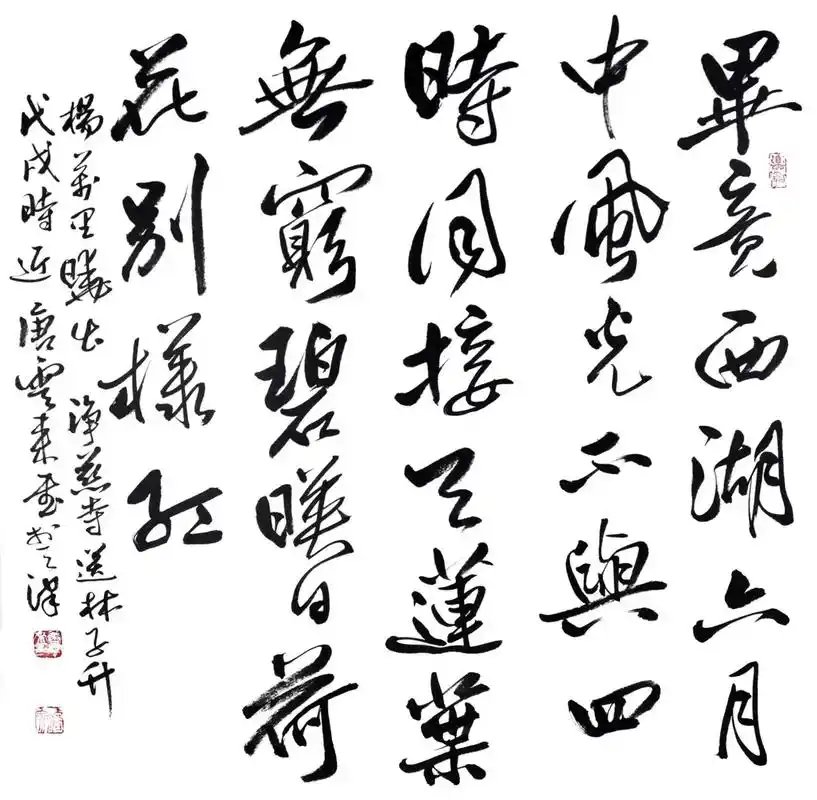 畢竟西湖六月
中風光不與四
時同接天蓮葉
無窮碧暎日荷
花別樣紅
楊萬里曉出淨慈寺送林子升
戊戌時近唐雲来書於天津